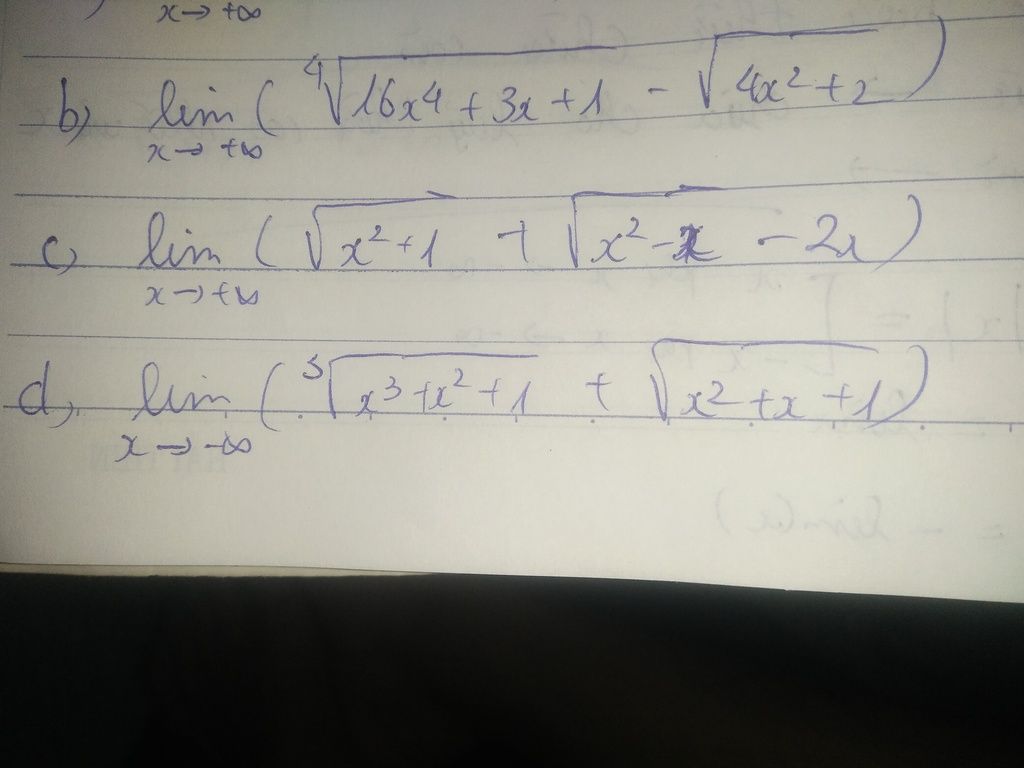 x→+∞
b) lim ( ∜16x⁴ + 3x + 1 - √4x² + 2 )
x→ +∞
c) lim ( √x² + 1 + √x² - x - 2x )
x→+∞
d, lim ( ∛x³ + x² + 1 + √x² + x + 1 )
x→ -∞